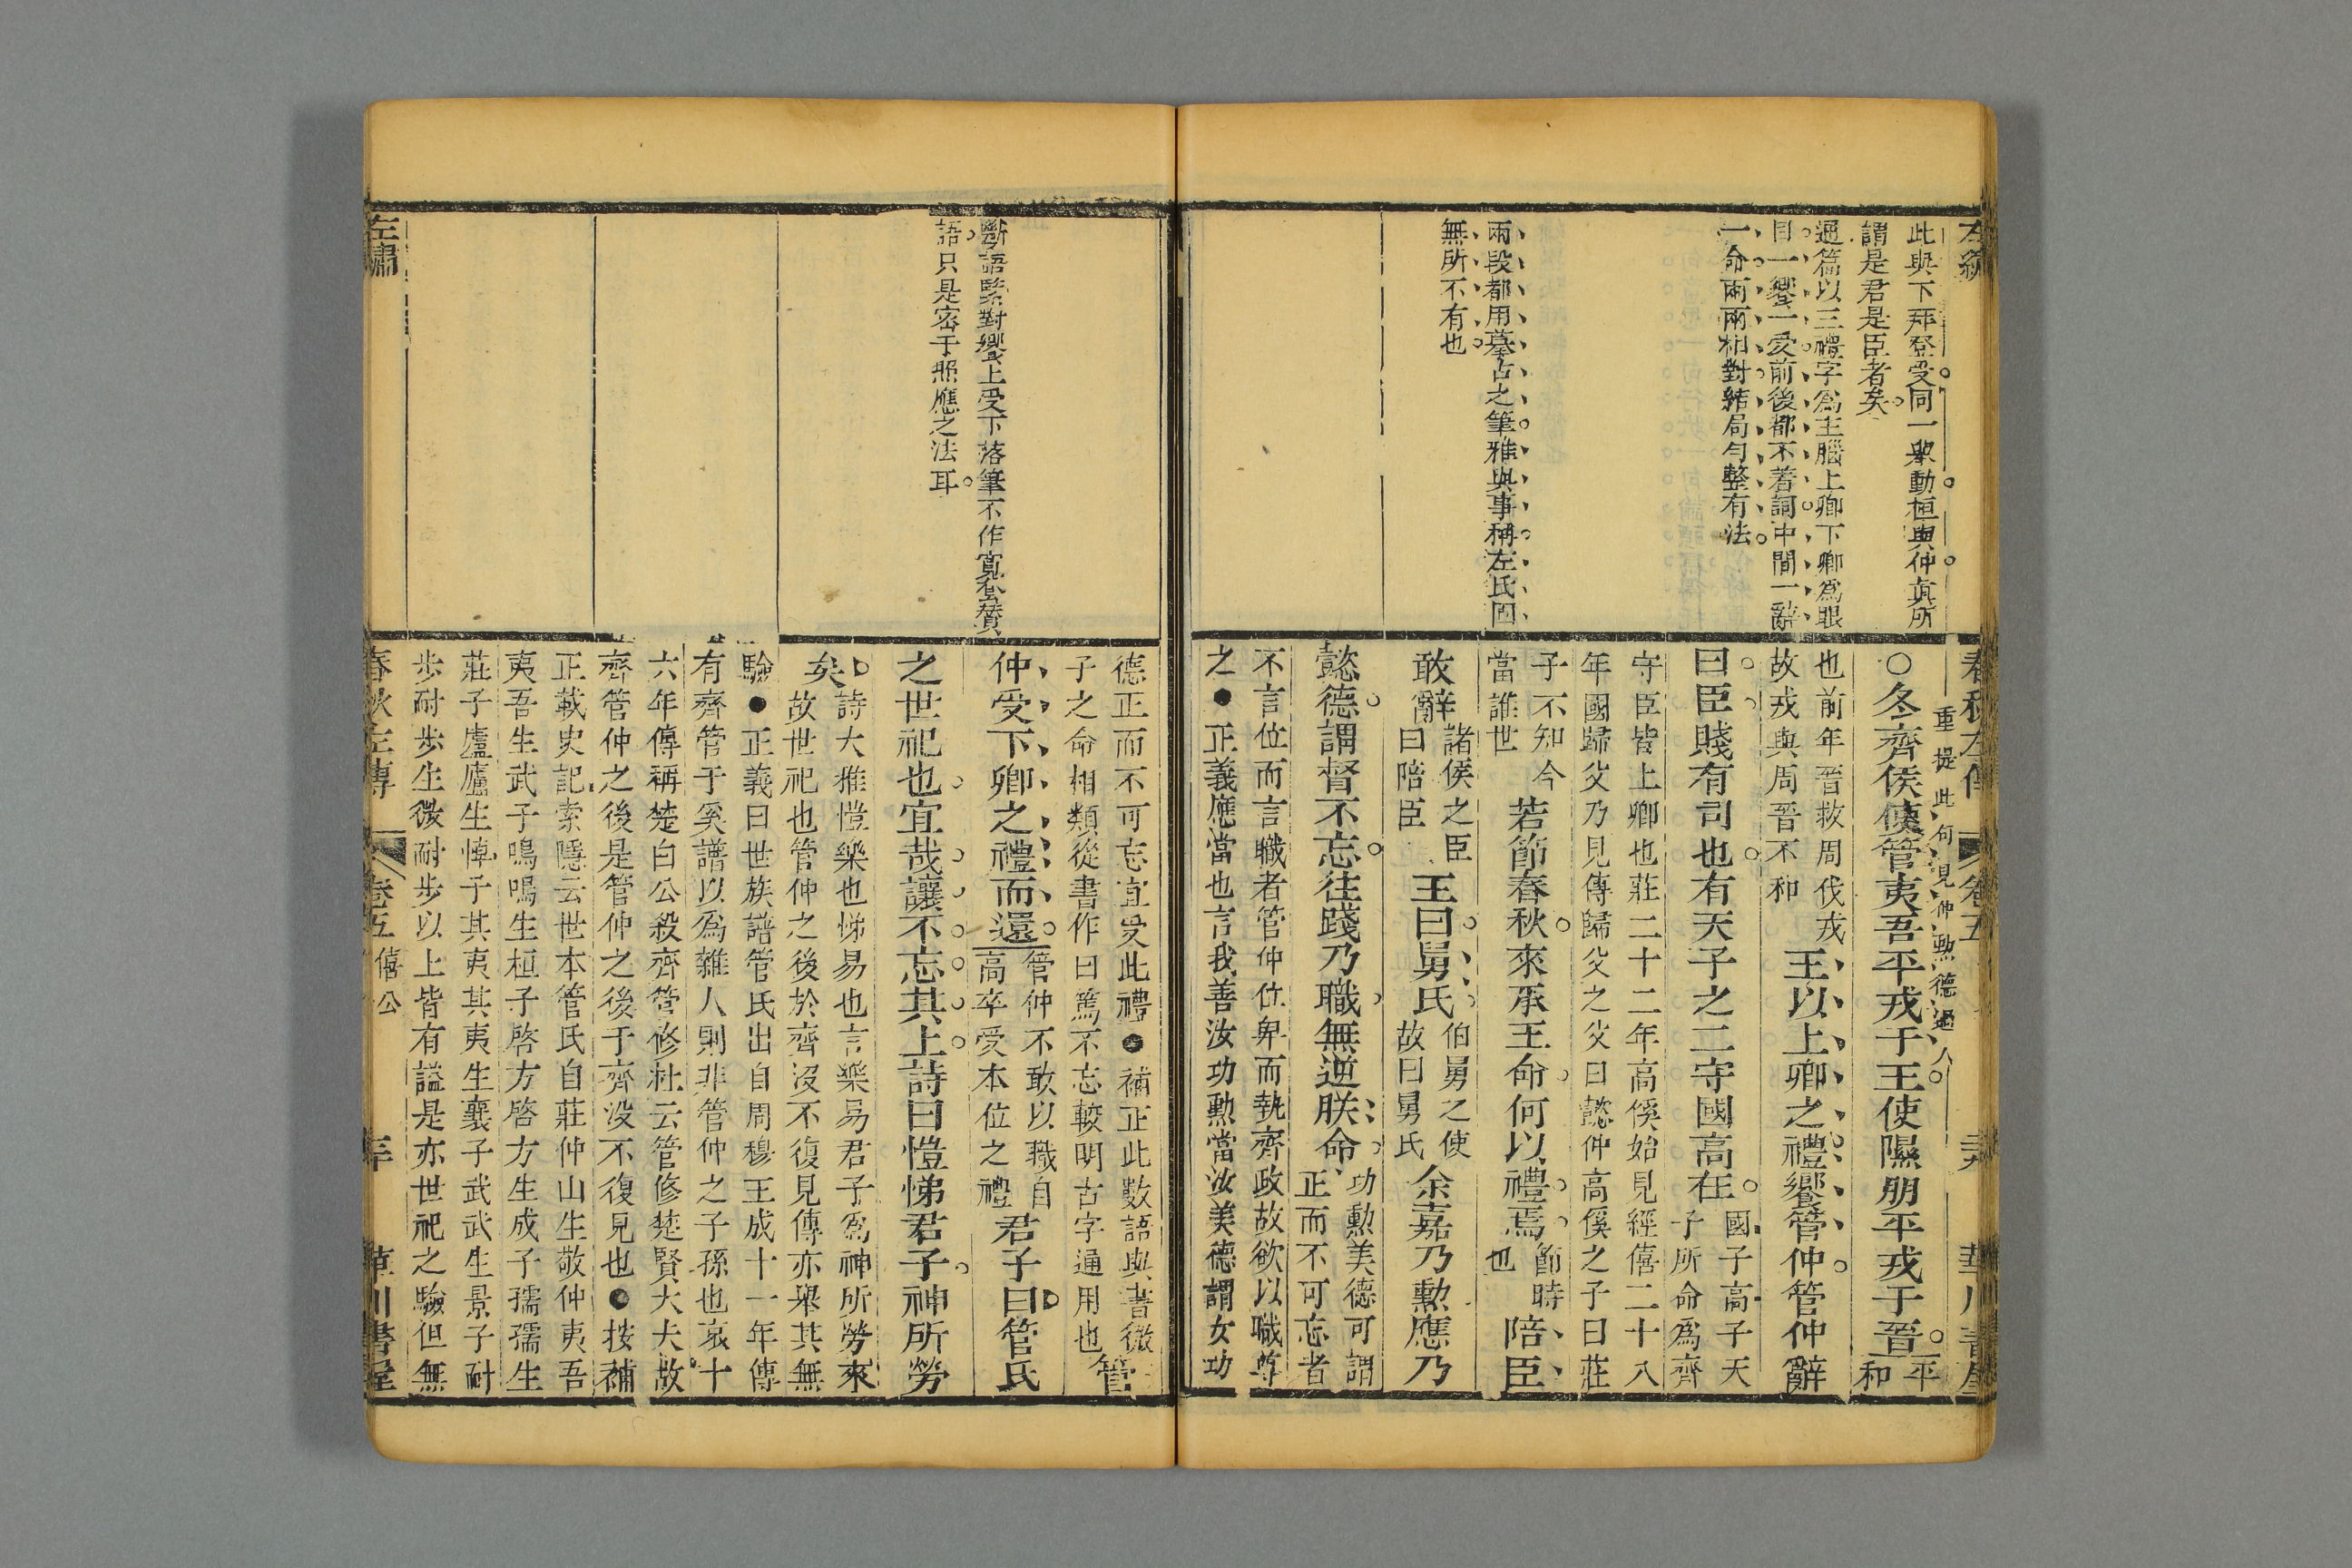 此與下拜登受同一舉動桓與仲眞所
謂是君是臣者矣
通篇以三禮字爲主腦上卿下卿爲眼
目一饗一受前後都不著詞中間一辭
一命兩兩相對結局勻整有法
兩段都用摹古之筆雅與事稱左氏固
無所不有也
重提此句見仲勲德過人
○冬齊侯使管夷吾平戎于王使隰朋平戎于晉平
和
也前年晉救周伐戎
故戎與周晉不和
王以上卿之禮饗管仲管仲辭
曰臣賤有司也有天子之二守國高在
國子高子天
子所命爲齊
守臣皆上卿也莊二十二年高傒始見經僖二十八
年國歸父乃見傳歸父之父曰懿仲高傒之子曰莊
子不知今
當誰世
若節春秋來承王命何以禮焉
節時
也
陪臣
敢辭
諸侯之臣
曰陪臣
王曰舅氏
伯舅之使
故曰舅氏
余嘉乃勲應乃
懿德謂督不忘往踐乃職無逆朕命
功勳美德可謂
正而不可忘者
不言位而言職者管仲位卑而執齊政故欲以職尊
之●正義應當也言我善汝功勲當汝美德謂女功
斷語緊對饗上受下落筆不作寬套贊
語只是密于照應之法耳
德正而不可忘宜受此禮●補正此數語與書微
子之命相類從書作曰篤不忘較明古字通用也
管
仲受下卿之禮而還
管仲不敢以職自
高卒受本位之禮
君子曰管氏
之世祀也宜哉讓不忘其上詩曰愷悌君子神所勞
矣
詩大雅愷樂也悌易也言樂易君子爲神所勞來
故世祀也管仲之後於齊沒不復見傳亦舉其無
驗●正義曰世族譜管氏出自周穆王成十一年傳
有齊管于奚譜以爲雜人則非管仲之子孫也哀十
六年傳稱楚白公殺齊管修杜云管修楚賢大夫故
齊管仲之後是管仲之後于齊沒不復見也●按補
正載史記索隱云世本管氏自莊仲山生敬仲夷吾
夷吾生武子鳴鳴生桓子啓方啓方生成子孺孺生
莊子盧盧生悼子其夷其夷生襄子武武生景子耐
步耐步生微耐步以上皆有諡是亦世祀之驗但無
左繡
春秋左傳
卷五
僖公
華川書屋